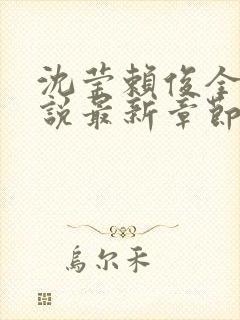 沈莹賴俊全
說最新章節
烏尔禾